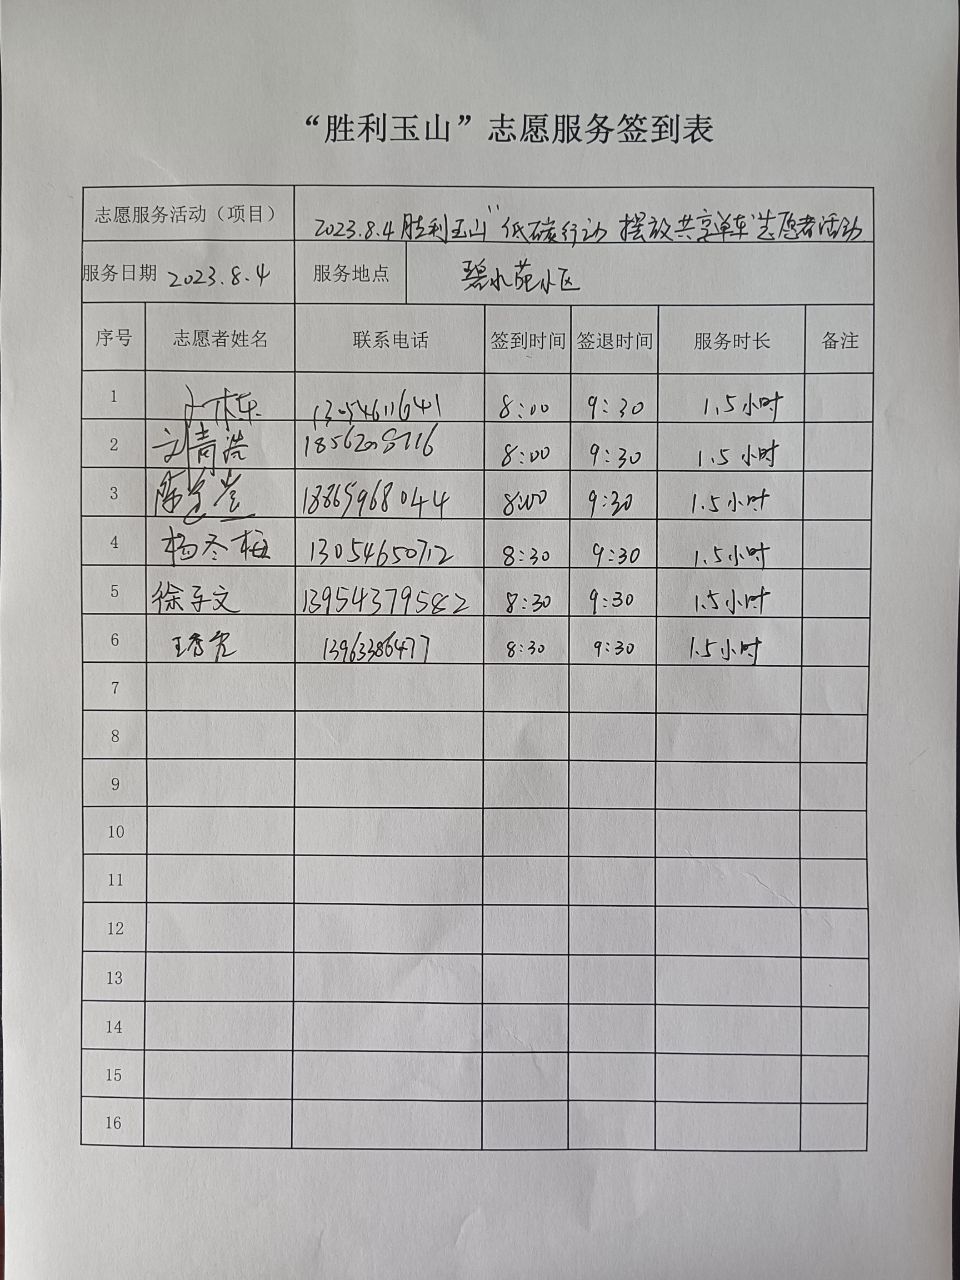 “胜利玉山”志愿服务签到表
志愿服务活动（项目） 2023.8.4胜利玉山“低碳行动 摆放共享单车”志愿者活动
服务日期 2023.8.4 服务地点 碧水苑小区
序号 志愿者姓名 联系电话 签到时间 签退时间 服务时长 备注
1 13054611641 8:00 9:30 1.5小时
2 8:00 9:30 1.5小时
3 18865968044 8:00 9:30 1.5小时
4 杨冬梅 13054650712 8:30 9:30 1.5小时
5 徐子文 13954379582 8:30 9:30 1.5小时
6 13963386477 8:30 9:30 1.5小时
7
8
9
10
11
12
13
14
15
16